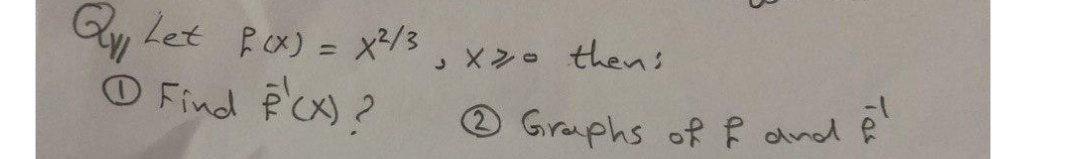 Q// Let f(x) = x^{2/3}, x ≥ 0 then:
① Find f^{-1}(x)? ② Graphs of f and f^{-1}